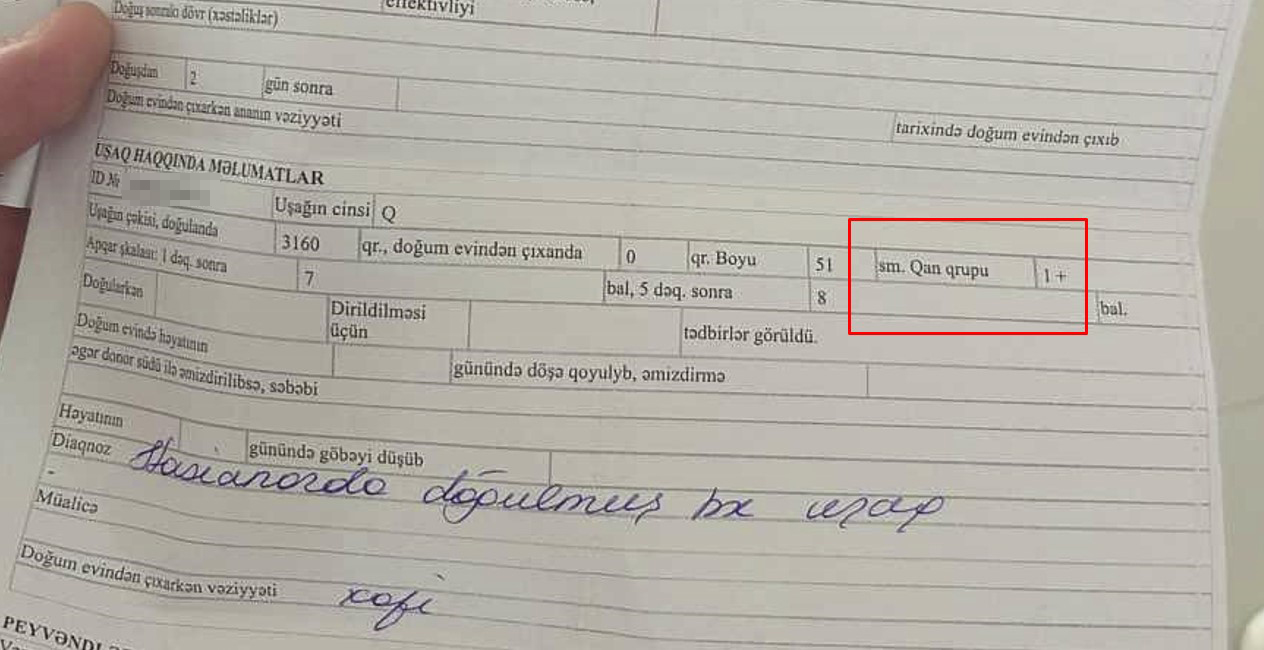 effektivliyi
Doğuş sonrakı dövr (xəstəliklər)
Doğuşdan 2 gün sonra
tarixində doğum evindən çıxıb
Doğum evindən çıxarkən ananın vəziyyəti
UŞAQ HAQQINDA MƏLUMATLAR
ID № Uşağın cinsi Q
Uşağın çəkisi, doğulanda 3160 qr., doğum evindən çıxanda 0 qr. Boyu 51 sm. Qan qrupu 1 +
Apqar şkalası: 1 dəq. sonra 7 bal, 5 dəq. sonra 8 bal.
Doğularkən Dirildilməsi üçün tədbirlər görüldü.
Doğum evində həyatının günündə döşə qoyulyb, əmizdirmə
əgər donor südü ilə əmizdirilibsə, səbəbi
Həyatının günündə göbəyi düşüb
Diaqnoz doğulmuş uşaq
-
Müalicə
Doğum evindən çıxarkən vəziyyəti kafi